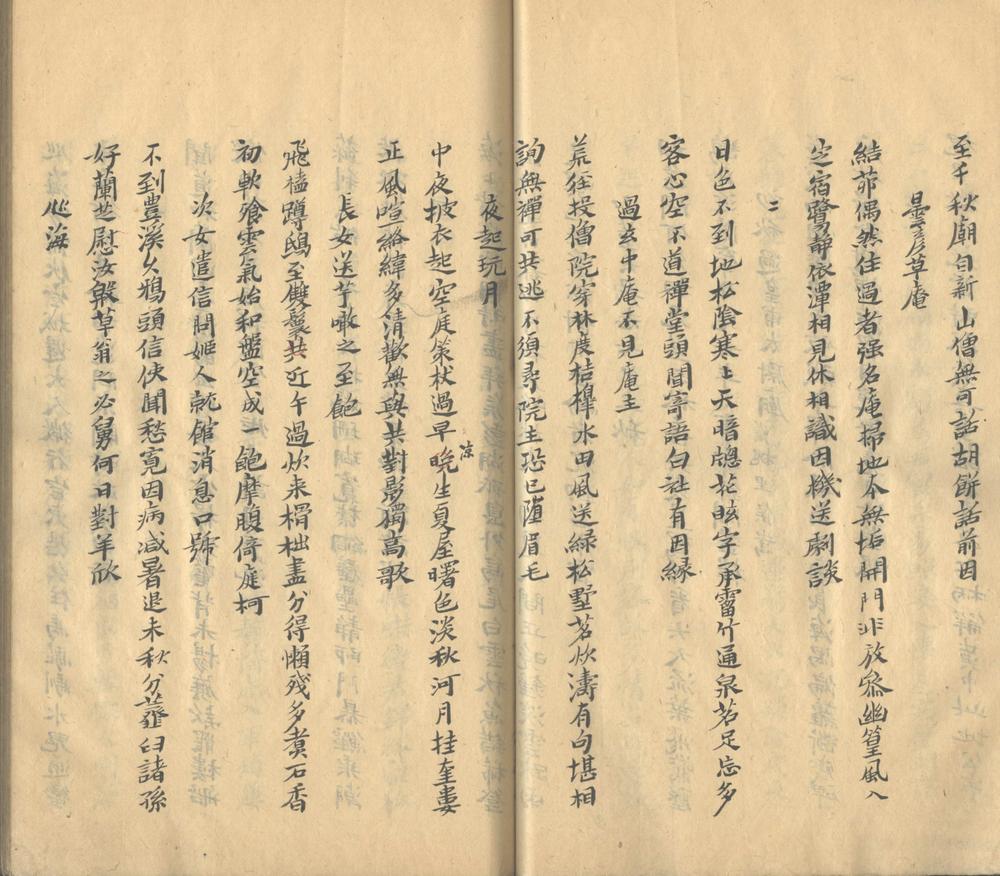 至千秋廟自新山僧無可話胡餅話前因
曇彥草庵
結茆偶然住過者强名庵掃地本無垢開門非放參幽篁風入
定宿鷺静依潭相見休相識因機送劇談
二
日色不到地松陰寒上天暗牕花眩字承霤竹通泉茗足忘多
客心空不道禪堂頭聞寄語白社有因緣
過玄中庵不見庵主
荒徑投僧院穿林度桔橰水田風送緑松墅茗炊濤有句堪相
詢無禪可共逃不須尋院主恐已墮眉毛
夜起玩月
中夜披衣起空庭策杖過早晩凉生夏屋曙色淡秋河月挂奎婁
正風喧絡緯多清歡無與共對影獨高歌
長女送芋噉之至飽
飛榼蹲鴟至雙鬟共近午過炊来榾柮盡分得懶殘多煑石香
初軟飱雲氣始和盤空成一飽摩腹倚庭柯
次女遣信問姬人就館消息口號
不到豊溪久鴉頭信使聞愁寛因病减暑退未秋分虀臼諸孫
好蘭芝慰汝懃草翁之必舅何日對羊欣
心海